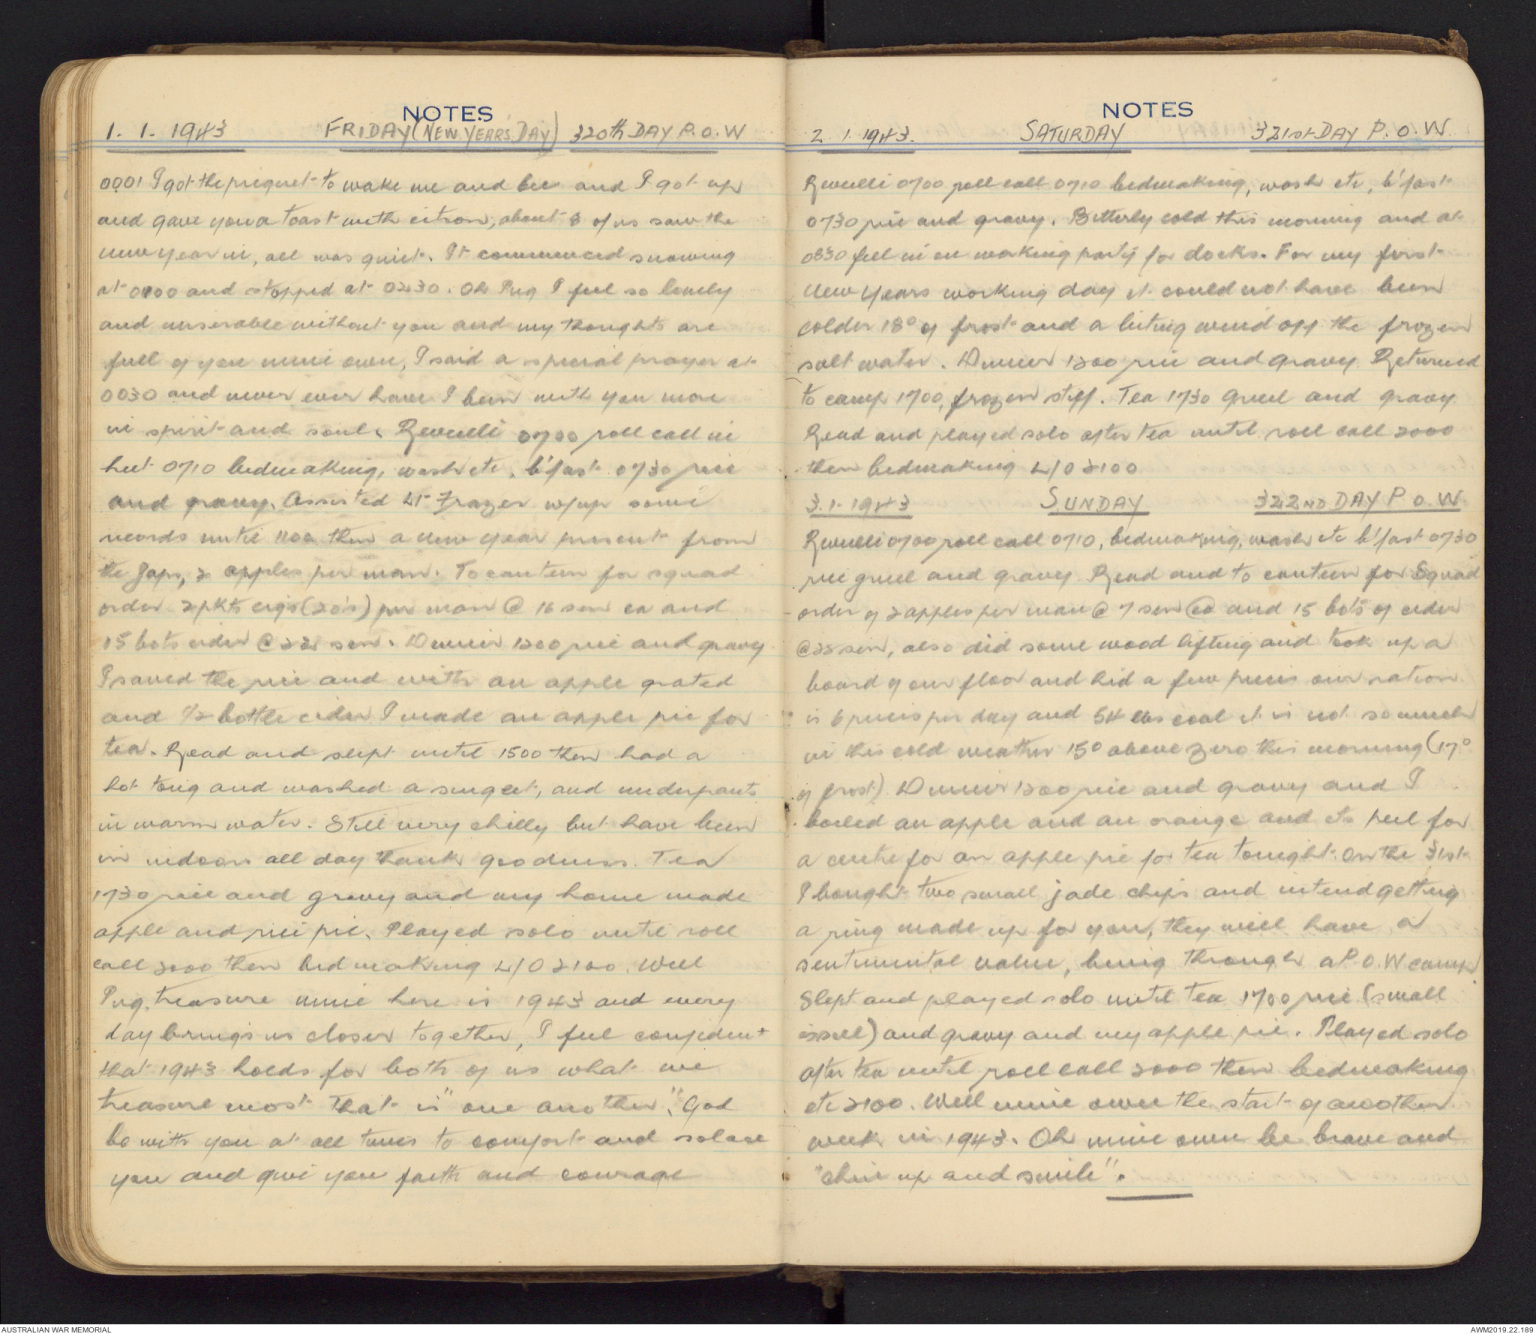 NOTES
1. 1. 1943 FRIDAY (NEW YEARS DAY) 320th DAY P.O.W
0001 I got the picquet to wake me and Lee and I got up
and gave you a toast with citron, about 8 of us saw the
new year in, all was quiet. It commenced snowing
at 0100 and stopped at 0230. Oh Pug I feel so lonely
and miserable without you and my thoughts are
full of you mine own, I said a special prayer at
0030 and never ever have I been with you more
in spirit and soul. Reveille 0700 roll call in
hut 0710 bedmaking, wash etc, b'fast 0730 rice
and gravy. Assisted Lt Frazer w/up some
records until 1100 then a new year present from
the Japs, 2 apples per man. To canteen for squad
order 2 pkts cigs (20's) per man @ 16 sen ea and
15 bots cider @ 22 sen. Dinner 1200 rice and gravy
I saved the rice and with an apple grated
and ½ bottle cider I made an apple pie for
tea. Read and slept until 1500 then had a
hot tong and washed a singlet, and underpants
in warm water. Still very chilly but have been
in indoors all day thank goodness. Tea
1730 rice and gravy and my home made
apple and rice pie. Played solo until roll
call 2000 then bedmaking L/O 2100. Well
Pug, treasure mine here is 1943 and every
day brings us closer together, I feel confident
that 1943 holds for both of us what we
treasure most that is "one another". God
be with you at all times to comfort and solace
you and give you faith and courage
NOTES
2 1. 1943. SATURDAY 321st DAY P.O.W
Reveille 0700 roll call 0710 bedmaking, wash etc, b'fast
0730 rice and gravy. Bitterly cold this morning and at
0830 fell in on working party for docks. For my first
New Years working day it could not have been
colder 18° of frost and a biting wind off the frozen
salt water. Dinner 1200 rice and gravy. Returned
to camp 1700, frozen stiff. Tea 1730 gruel and gravy
Read and played solo after tea until roll call 2000
then bedmaking L/O 2100
3. 1. 1943 SUNDAY 322ND DAY P.O.W.
Reveille 0700 roll call 0710, bedmaking, wash etc b'fast 0730
rice gruel and gravy. Read and to canteen for Squad
order of 2 apples per man @ 7 sen ea and 15 bots of cider
@ 22 sen, also did some wood lifting and took up a
board of our floor and hid a few pieces our ration
is 6 pieces per day and 54 lbs coal it is not so much
in this cold weather 15° above zero this morning (17°
of frost). Dinner 1200 rice and gravy and I
boiled an apple and an orange and its peel for
a centre for an apple pie for tea tonight. On the 31st
I bought two small jade chips and intend getting
a ring made up for you, they will have a
sentimental value, being through a P.O.W camp
Slept and played solo until tea 1700 rice (small
issue) and gravy and my apple pie. Played solo
after tea until roll call 2000 then bedmaking
etc 2100. Well mine own the start of another
week in 1943. Oh mine own be brave and
"chin up and smile".
AUSTRALIAN WAR MEMORIAL
AWM2019.22.189